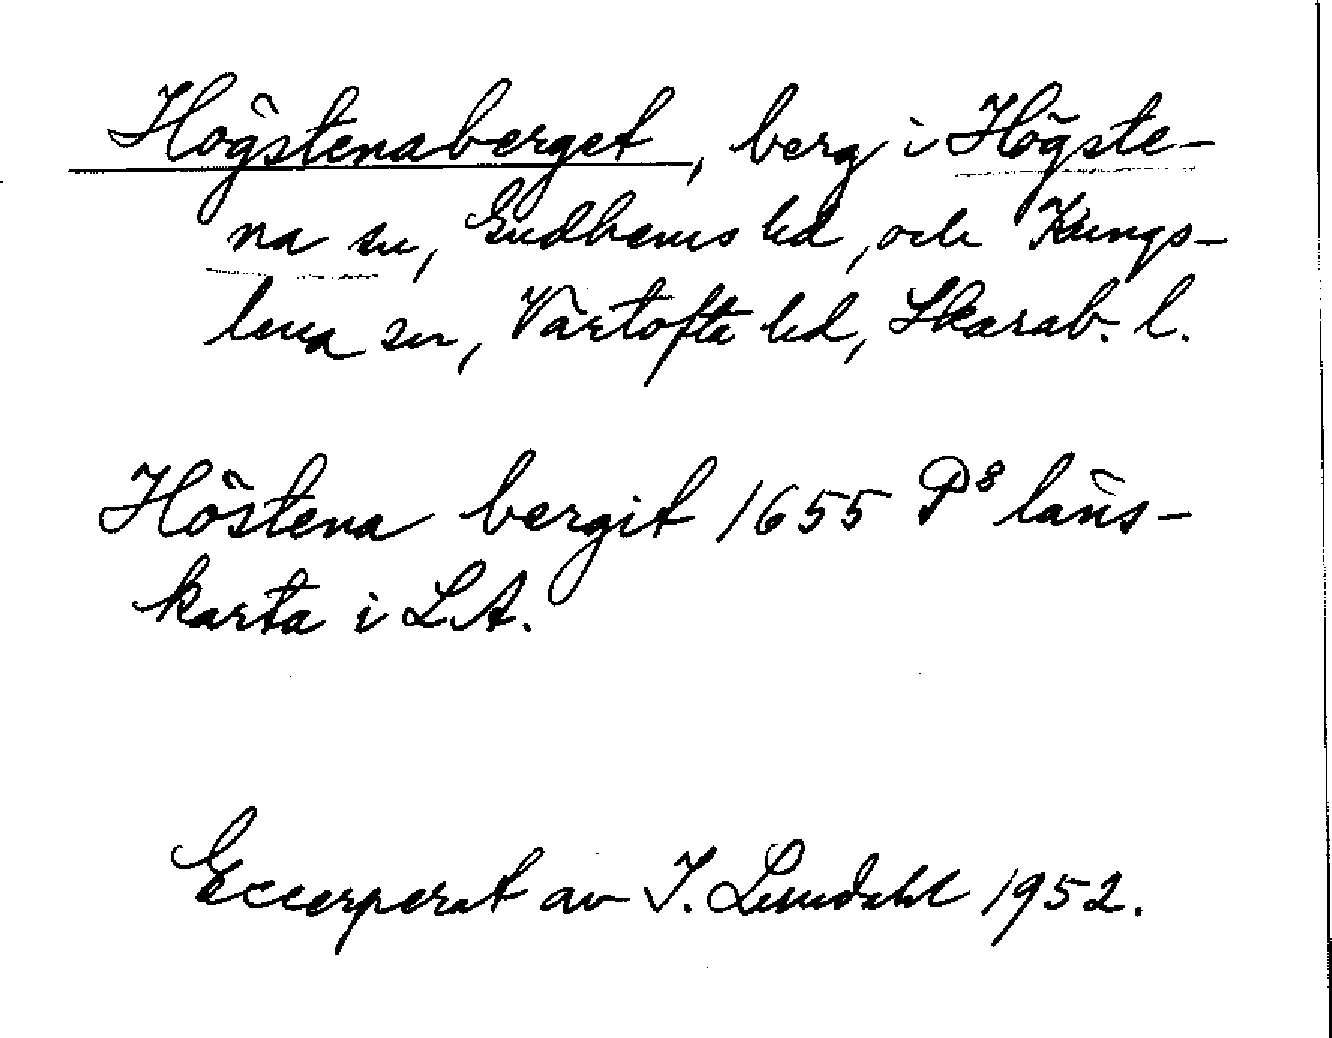 Högstenaberget, berg i Högste-
na sn, Gudhems hd, och Kungs-
lena sn, Vartofta hd, Skarab. l.
Höstena bergit 1655 P8 läns-
karta i LA.
Eccerperat av I. Lundahl 1952.